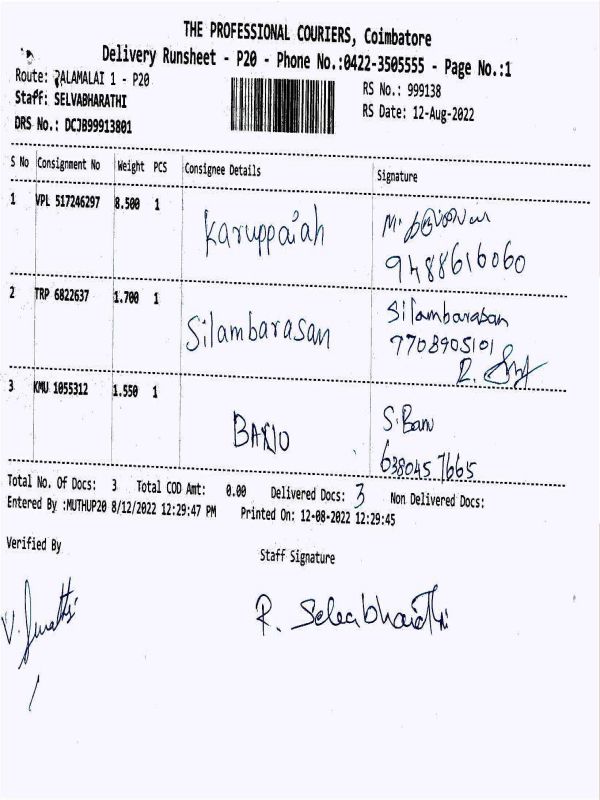 THE PROFESSIONAL COURIERS, Coimbatore
Delivery Runsheet - P20 - Phone No.:0422-3505555 - Page No.:1
Route: PALAMALAI 1 - P20
RS No.: 999138
Staff: SELVABHARATHI
RS Date: 12-Aug-2022
DRS No.: DCJB99913801
S No Consignment No Weight PCS Consignee Details Signature
1 VPL 517246297 8.500 1 Karuppaiah M.
9488616060
2 TRP 6822637 1.700 1 Silambarasan Silambarasan
7708905101
R.
3 KMU 1055312 1.550 1 BANO S. Banu
638045 7665
Total No. Of Docs: 3 Total COD Amt: 0.00 Delivered Docs: 3 Non Delivered Docs:
Entered By :MUTHUP20 8/12/2022 12:29:47 PM Printed On: 12-08-2022 12:29:45
Verified By
Staff Signature
V.
R. Selvabharathi